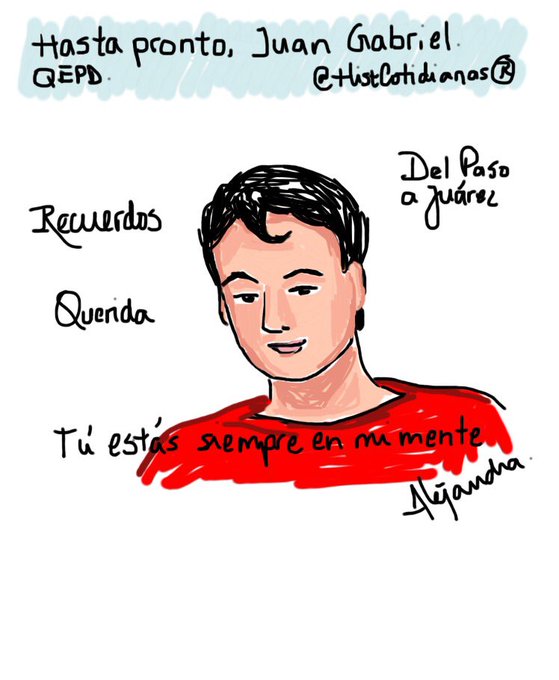 Hasta pronto, Juan Gabriel.
QEPD.
@HistCotidianas®
Del Paso
a Juárez
Recuerdos
Querida
Tú estás siempre en mi mente
Alejandra.